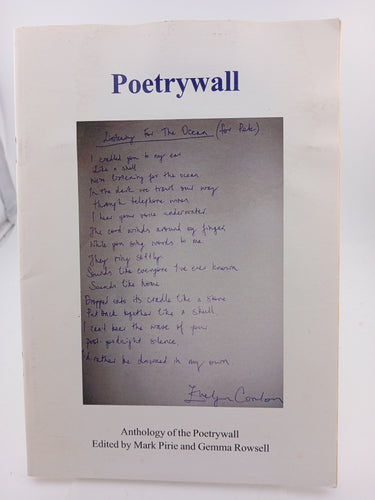 Poetrywall
Listening For The Ocean (for Pete)
I cradled you to my ear
Like a shell
Were listening for the ocean
In the dark we travel our way
through telephone wires
I hear your voice underwater
The cord winds around my finger
While you sing words to me
They ring softly
Sounds like everyone I've ever known
Sounds like home
Dropped into its cradle like a stone
Put back together like a shell
I can't bear the wave of your
post-goodnight silence,
I'd rather be drowned in my own
Evelyn Conlon
Anthology of the Poetrywall
Edited by Mark Pirie and Gemma Rowsell